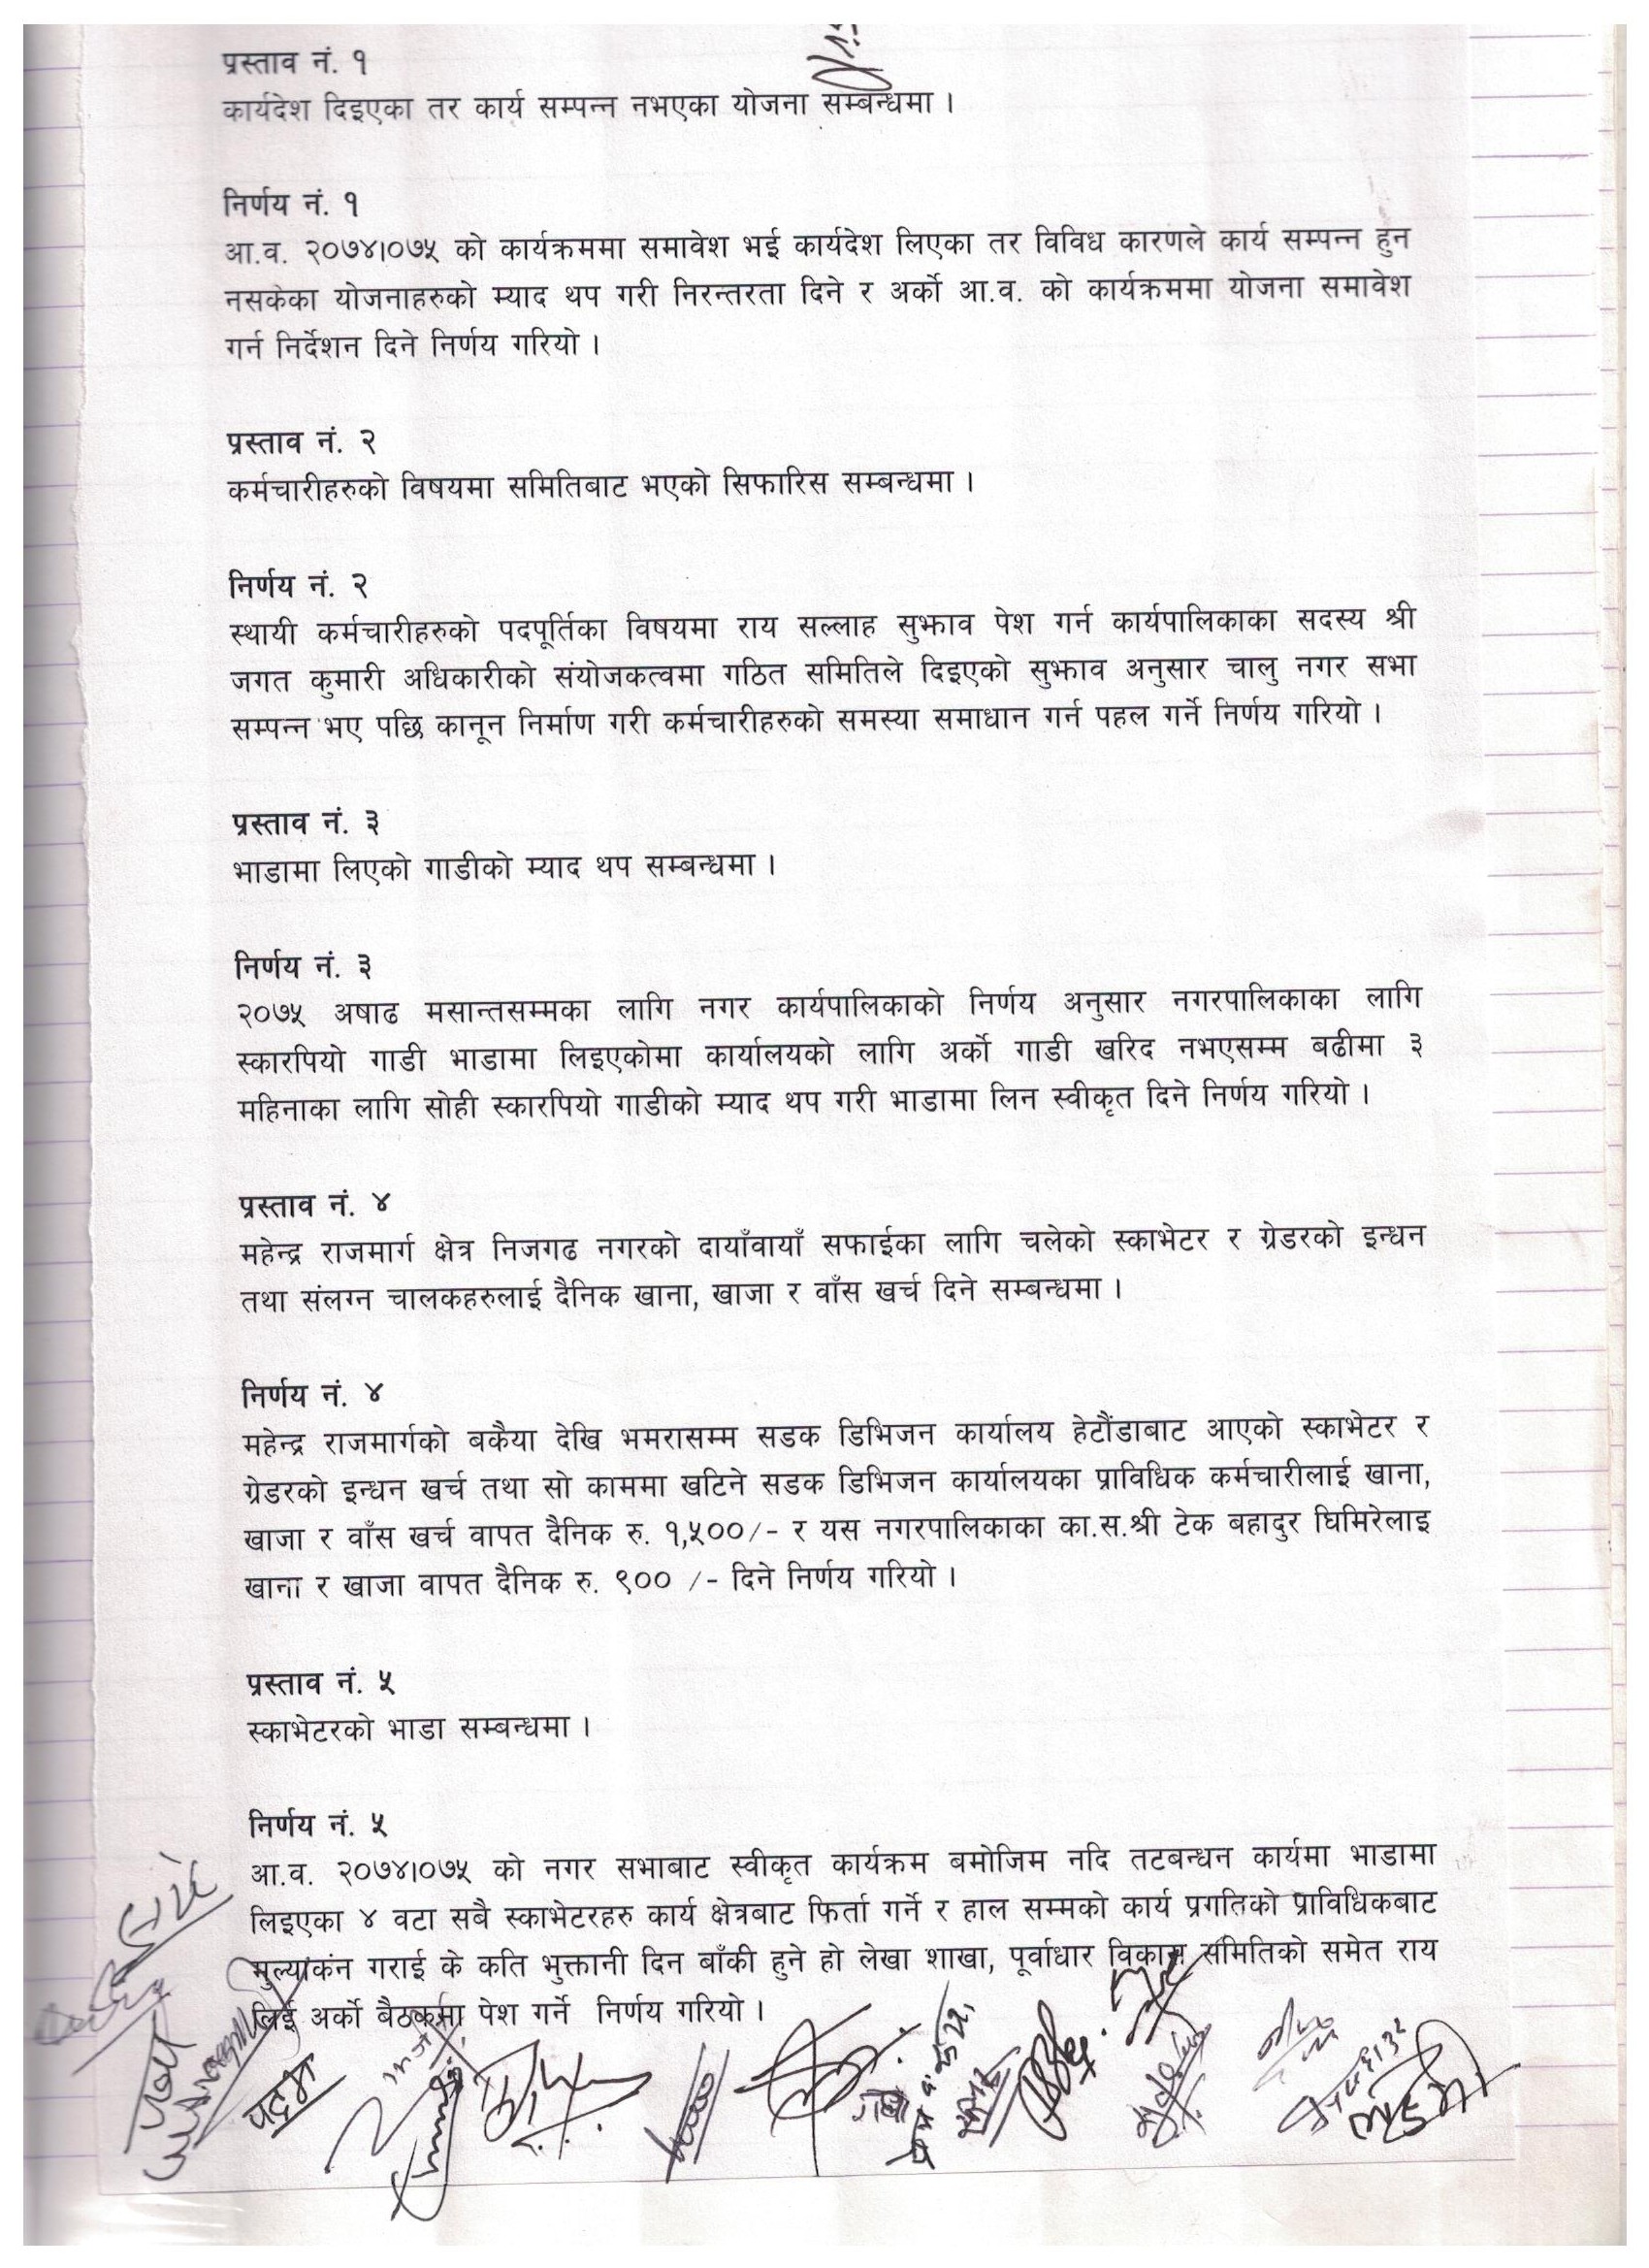 प्रस्ताव नं. १
कार्यदेश दिइएका तर कार्य सम्पन्न नभएका योजना सम्बन्धमा ।
निर्णय नं. १
आ.व. २०७४।०७५ को कार्यक्रममा समावेश भई कार्यदेश लिएका तर विविध कारणले कार्य सम्पन्न हुन
नसकेका योजनाहरुको म्याद थप गरी निरन्तरता दिने र अर्को आ.व. को कार्यक्रममा योजना समावेश
गर्न निर्देशन दिने निर्णय गरियो ।
प्रस्ताव नं. २
कर्मचारीहरुको विषयमा समितिबाट भएको सिफारिस सम्बन्धमा ।
निर्णय नं. २
स्थायी कर्मचारीहरुको पदपूर्तिका विषयमा राय सल्लाह सुझाव पेश गर्न कार्यपालिकाका सदस्य श्री
जगत कुमारी अधिकारीको संयोजकत्वमा गठित समितिले दिइएको सुझाव अनुसार चालु नगर सभा
सम्पन्न भए पछि कानून निर्माण गरी कर्मचारीहरुको समस्या समाधान गर्न पहल गर्ने निर्णय गरियो ।
प्रस्ताव नं. ३
भाडामा लिएको गाडीको म्याद थप सम्बन्धमा ।
निर्णय नं. ३
२०७५ अषाढ मसान्तसम्मका लागि नगर कार्यपालिकाको निर्णय अनुसार नगरपालिकाका लागि
स्कारपियो गाडी भाडामा लिइएकोमा कार्यालयको लागि अर्को गाडी खरिद नभएसम्म बढीमा ३
महिनाका लागि सोही स्कारपियो गाडीको म्याद थप गरी भाडामा लिन स्वीकृत दिने निर्णय गरियो ।
प्रस्ताव नं. ४
महेन्द्र राजमार्ग क्षेत्र निजगढ नगरको दायाँवायाँ सफाईका लागि चलेको स्काभेटर र ग्रेडरको इन्धन
तथा संलग्न चालकहरुलाई दैनिक खाना, खाजा र वाँस खर्च दिने सम्बन्धमा ।
निर्णय नं. ४
महेन्द्र राजमार्गको बकैया देखि भमरासम्म सडक डिभिजन कार्यालय हेटौंडाबाट आएको स्काभेटर र
ग्रेडरको इन्धन खर्च तथा सो काममा खटिने सडक डिभिजन कार्यालयका प्राविधिक कर्मचारीलाई खाना,
खाजा र वाँस खर्च वापत दैनिक रु. १,५००/- र यस नगरपालिकाका का.स.श्री टेक बहादुर घिमिरेलाइ
खाना र खाजा वापत दैनिक रु. ९०० /- दिने निर्णय गरियो ।
प्रस्ताव नं. ५
स्काभेटरको भाडा सम्बन्धमा ।
निर्णय नं. ५
आ.व. २०७४।०७५ को नगर सभाबाट स्वीकृत कार्यक्रम बमोजिम नदि तटबन्धन कार्यमा भाडामा
लिइएका ४ वटा सबै स्काभेटरहरु कार्य क्षेत्रबाट फिर्ता गर्ने र हाल सम्मको कार्य प्रगतिको प्राविधिकबाट
मुल्याकंन गराई के कति भुक्तानी दिन बाँकी हुने हो लेखा शाखा, पूर्वाधार विकास समितिको समेत राय
लिई अर्को बैठकमा पेश गर्ने निर्णय गरियो ।
पदम